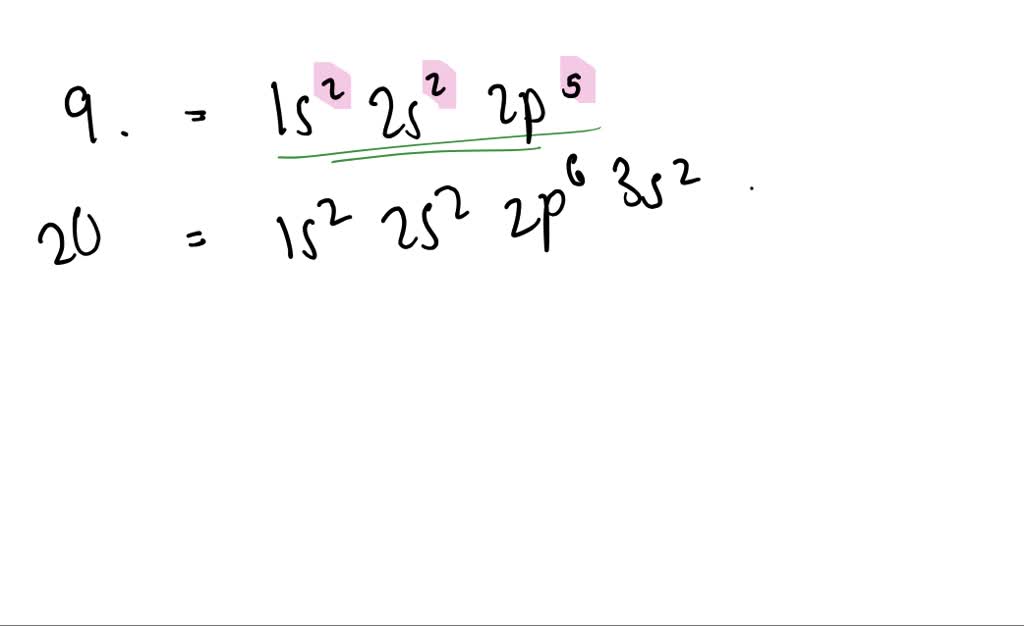 9. = 1s² 2s² 2p⁵
20 = 1s² 2s² 2p⁶ 3s² .